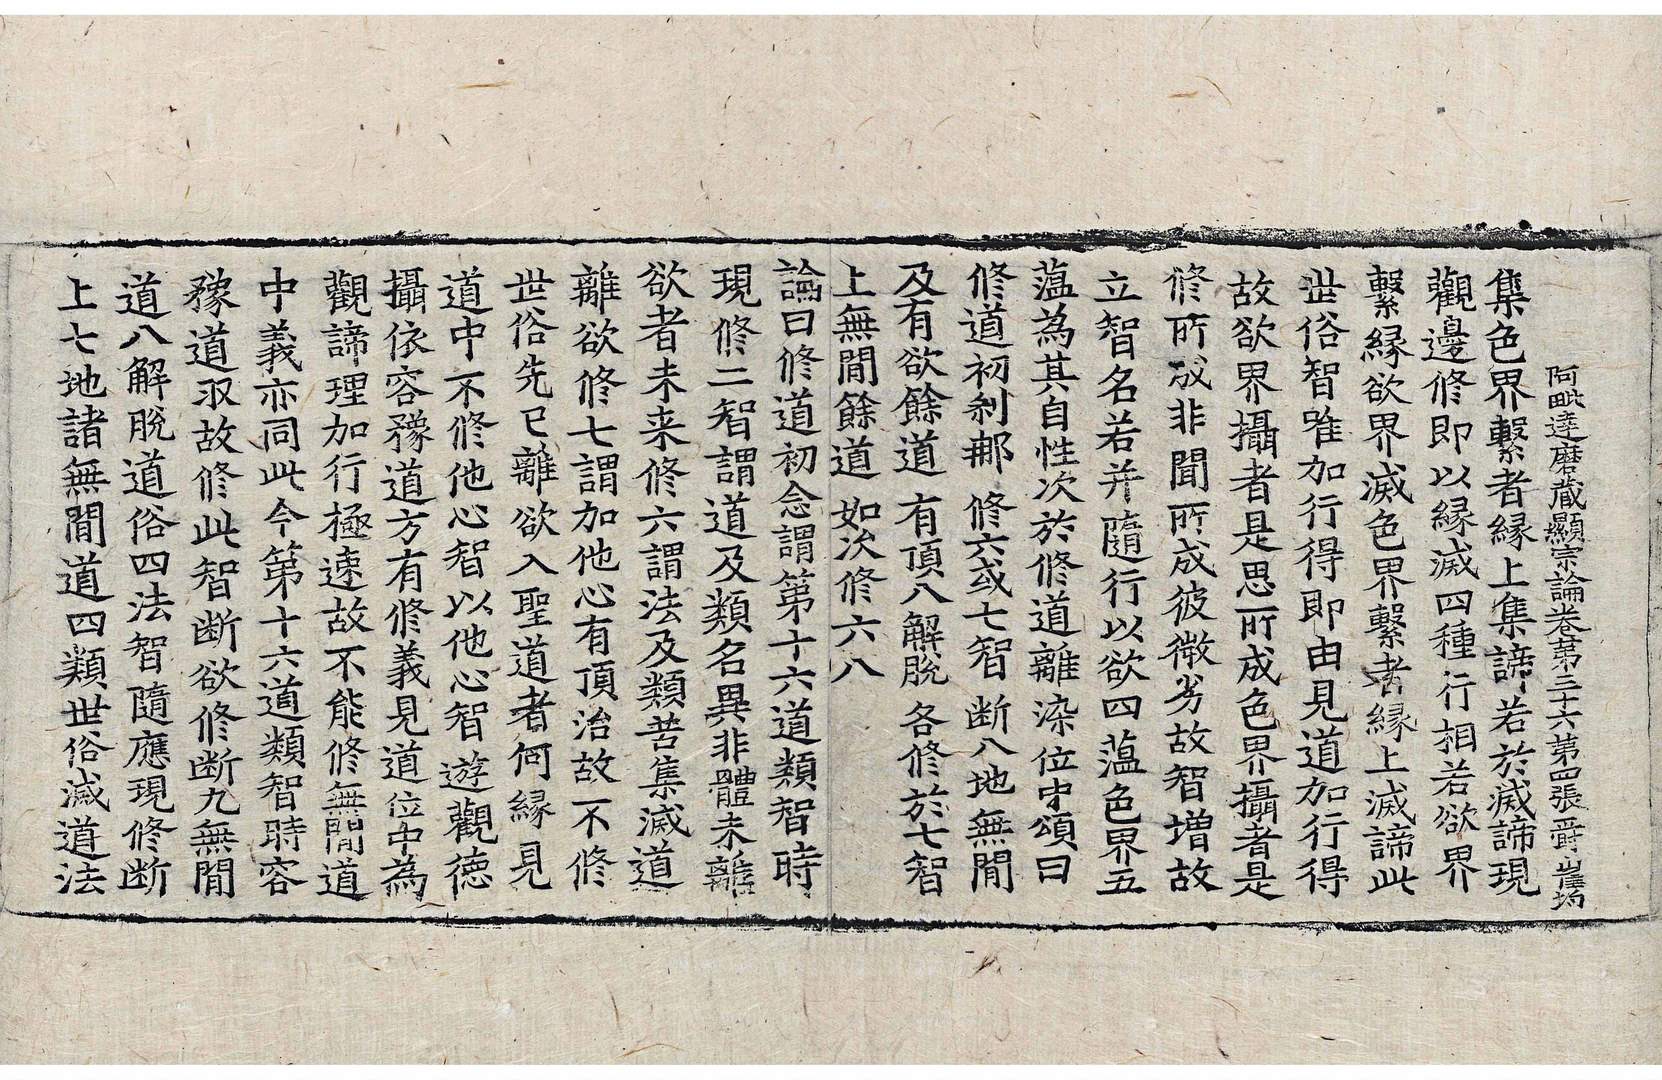 阿毗達磨藏顯宗論卷第三十六第四張爵崖坞
集色界繫者緣上集諦若於滅諦現
觀邊修即以緣滅四種行相若欲界
繫緣欲界滅色界繫者緣上滅諦此
世俗智唯加行得即由見道加行得
故欲界攝者是思所成色界攝者是
修所成非聞所成彼微劣故智增故
立智名若并隨行以欲四蕰色界五
蕰為其自性次於修道離染位中頌曰
修道初剎那 修六或七智 断八地無間
及有欲餘道 有頂八解脫 各修於七智
上無間餘道 如次修六八
論曰修道初念謂第十六道類智時
現修二智謂道及類名異非體未離
欲者未来修六謂法及類苦集滅道
離欲修七謂加他心有頂治故不修
世俗先已離欲入聖道者何緣見
道中不修他心智以他心智遊觀德
攝依容豫道方有修義見道位中為
觀諦理加行極速故不能修無間道
中義亦同此今第十六道類智時容
豫道収故修此智断欲修断九無間
道八解脫道俗四法智隨應現修断
上七地諸無間道四類世俗滅道法